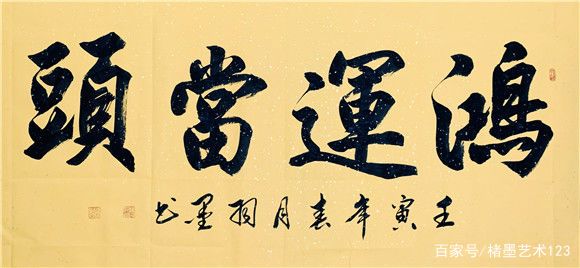 鴻運當頭
壬寅年春月墨书
百家号/楮墨艺术123